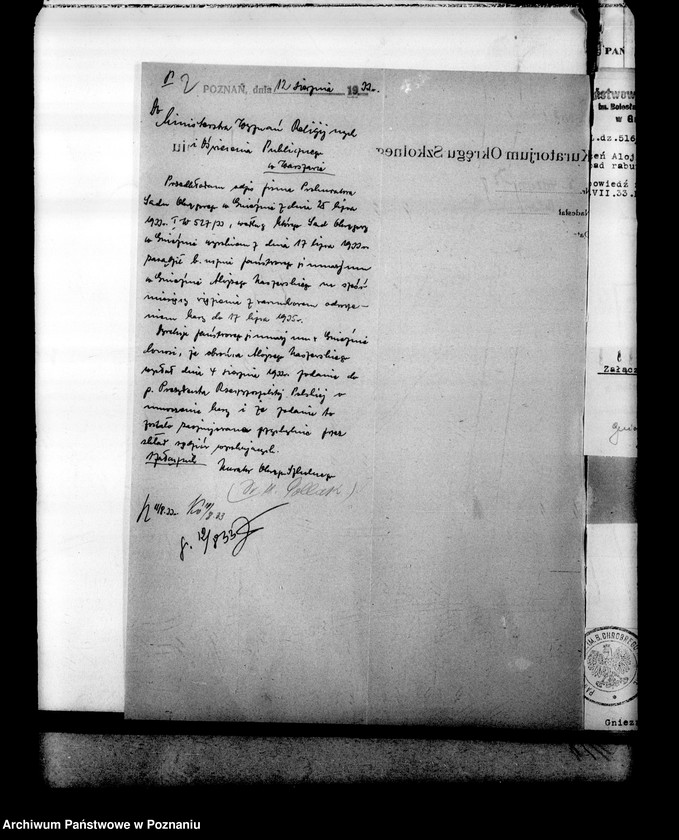 POZNAŃ, dnia 12 sierpnia 1933 r.
Do
Ministerstwa Wyznań Religijnych
i Oświecenia Publicznego
w Warszawie
Przedkładam odpis pisma Prokuratora
Sądu Okręgowego w Gnieźnie z dnia 25 lipca
1933 r. I W 527/33, według którego Sąd Okręgowy
w Gnieźnie wyrokiem z dnia 17 lipca 1933 r.
zasądził b. ucznia państwowego gimnazjum
w Gnieźnie Alojzego
miesięcy więzienia z warunkowem odrocze-
niem kary do 17 lipca 1935 r.
Dyrekcja państwowego gimnazjum w Gnieźnie
donosi, że obrońca Alojzego
wysłał dnia 4 sierpnia 1933 podanie do
p. Prezydenta Rzeczypospolitej Polskiej o
umorzenie kary i że podanie to
zostało przychylnie przez
skład sędziów wyrokujących.
Kurator Okręgu Szkolnego
(Dr. M. Pollak)
11/8.33.
12/8 33
Kuratorjum Okręgu Szkolnego
PAŃ
ństwow
im. Bolesła
w G
L.dz.516
eń Aloj
ad rabu
powiedź
VII.33.
Załąc
IM. B. CHROBREGO
Gniez
Archiwum Państwowe w Poznaniu